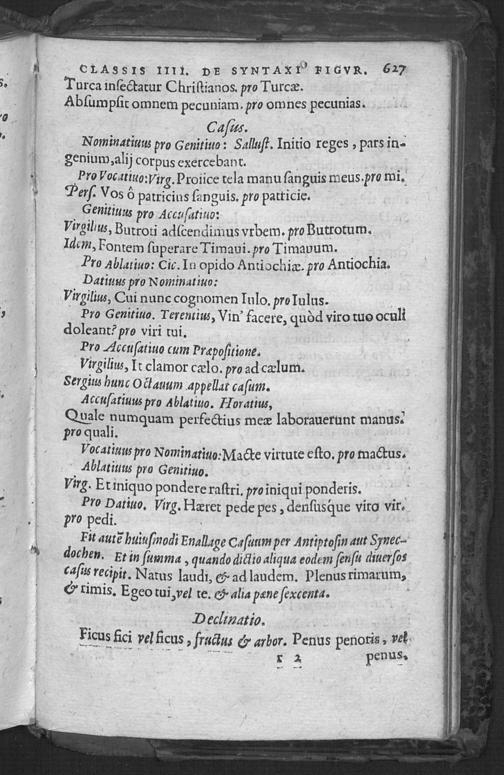 CLASSIS IIII. DE SYNTAXI FIGVR. 627
Turca insectatur Christianos. pro Turcæ.
Absumpsit omnem pecuniam. pro omnes pecunias.
Casus.
Nominatiuus pro Genitiuo: Sallust. Initio reges, pars in-
genium, alij corpus exercebant.
Pro Vocatiuo: Virg. Proiice tela manu sanguis meus. pro mi.
Pers. Vos ô patricius sanguis. pro patricie.
Genitiuus pro Accusatiuo:
Virgilius, Butroti adscendimus vrbem. pro Butrotum.
Idem, Fontem superare Timaui. pro Timauum.
Pro Ablatiuo: Cic. In opido Antiochiæ. pro Antiochia.
Datiuus pro Nominatiuo:
Virgilius, Cui nunc cognomen Iulo. pro Iulus.
Pro Genitiuo. Terentius, Vin' facere, quòd viro tuo oculi
doleant? pro viri tui.
Pro Accusatiuo cum Præpositione.
Virgilius, It clamor cælo. pro ad cælum.
Sergius hunc Octauum appellat casum.
Accusatiuus pro Ablatiuo. Horatius,
Quale numquam perfectius meæ laborauerunt manus.
pro quali.
Vocatiuus pro Nominatiuo: Macte virtute esto. pro mactus.
Ablatiuus pro Genitiuo.
Virg. Et iniquo pondere rastri. pro iniqui ponderis.
Pro Datiuo. Virg. Hæret pede pes, densusque viro vir.
pro pedi.
Fit autē huiusmodi Enallage Casuum per Antiptosin aut Synec-
dochen. Et in summa, quando dictio aliqua eodem sensu diuersos
casus recipit. Natus laudi, & ad laudem. Plenus rimarum,
& rimis. Egeo tui, vel te. & alia pæne sexcenta.
Declinatio.
Ficus fici vel ficus, fructus & arbor. Penus penoris, vel
r 2 penus,